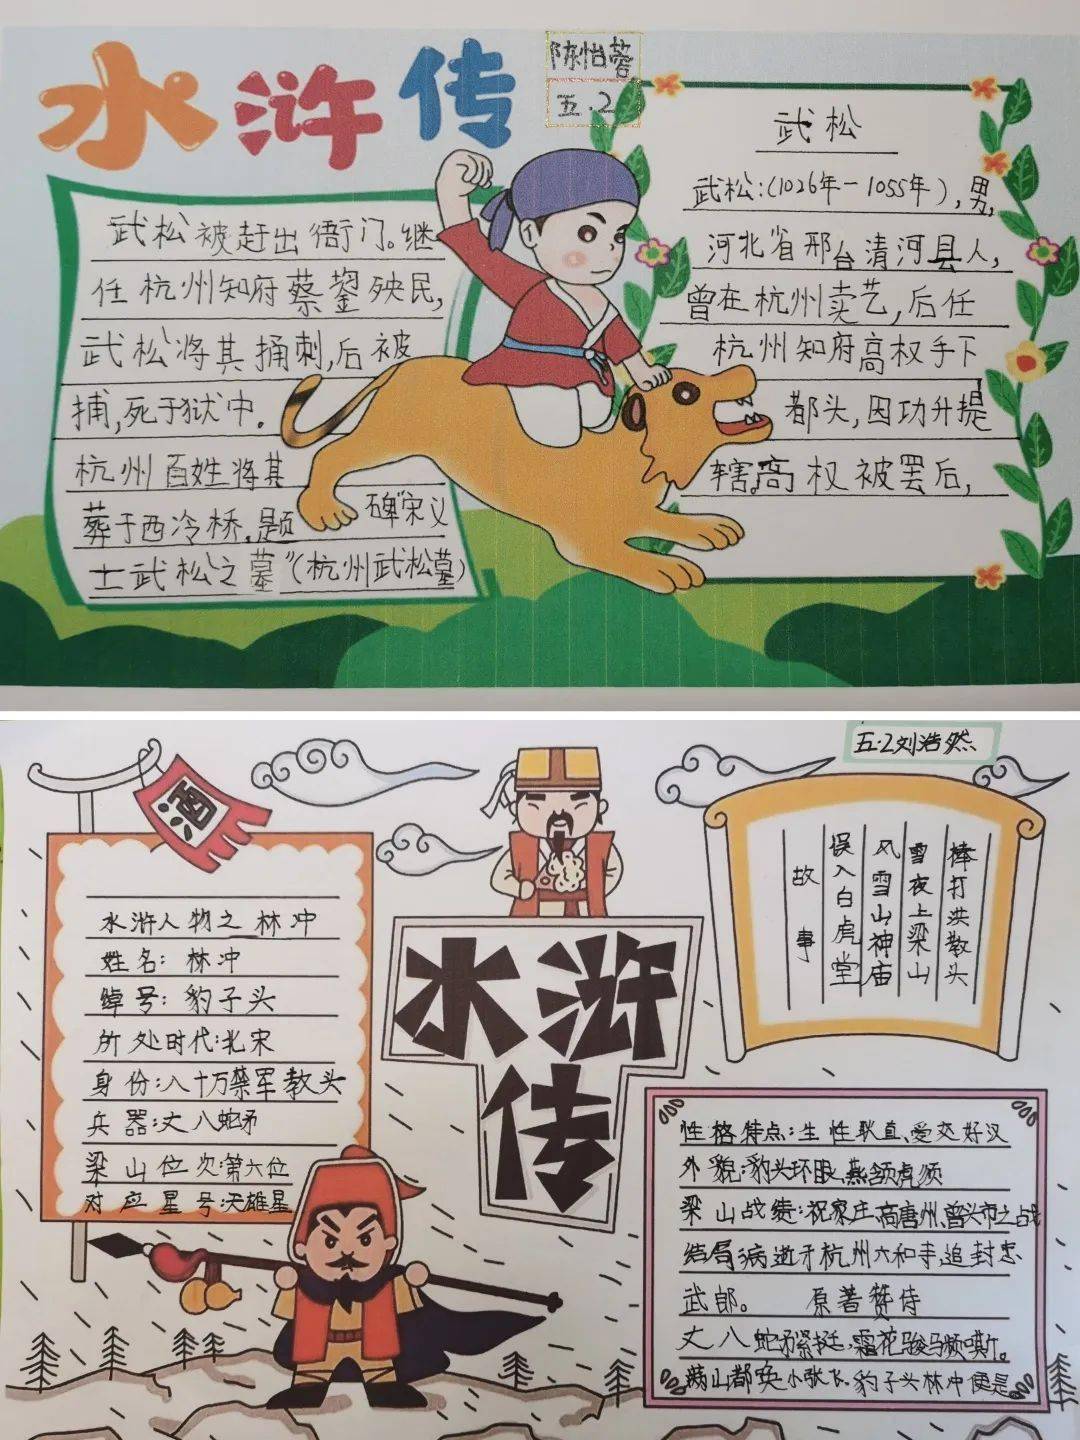 水浒传
陈怡蓉
五.2
武松被赶出衙门。继
任杭州知府蔡鋆殃民,
武松将其捅刺,后被
捕,死于狱中.
杭州百姓将其
葬于西冷桥,题碑"宋义
士武松之墓"(杭州武松墓)
武松
武松:(1026年-1055年),男,
河北省邢台清河县人,
曾在杭州卖艺,后任
杭州知府高权手下
都头,因功升提
辖。高权被罢后,
五.2刘浩然
酒
水浒人物之林冲
姓名:林冲
绰号:豹子头
所处时代:北宋
身份:八十万禁军教头
兵器:丈八蛇矛
梁山位次:第六位
对应星号:天雄星
水浒
传
棒打洪教头
雪夜上梁山
风雪山神庙
误入白虎堂
故事
性格特点:生性耿直、爱交好汉
外貌:豹头环眼、燕颔虎须
梁山战绩:祝家庄、高唐州、曾头市之战
结局:病逝于杭州六和寺追封忠
武郎。 原著赞诗
丈八蛇矛紧挺,霜花骏马频嘶。
满山都唤小张飞,豹子头林冲便是